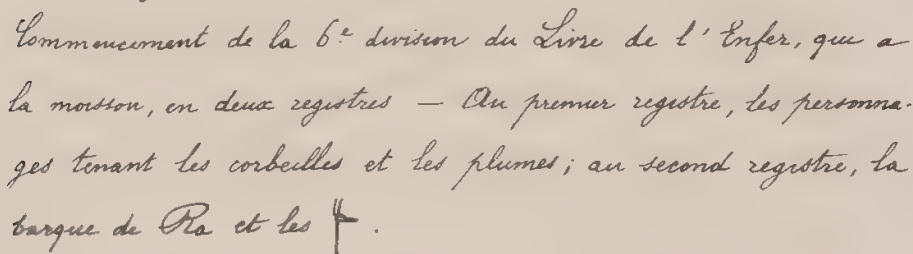 Commencement de la 6e division du Livre de l'Enfer, qui a
la moisson, en deux registres — Au premier registre, les personna-
ges tenant les corbeilles et les plumes; au second registre, la
barque de Ra et les 𓊹.